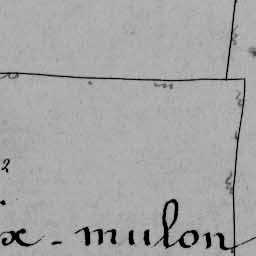 2
ix - mulon